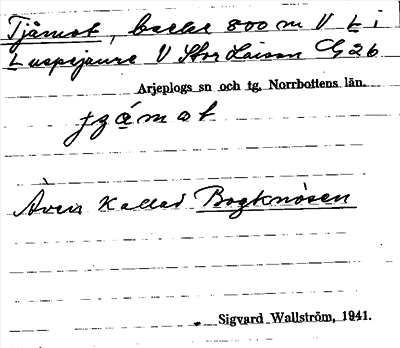 Tjåmot, backe 800 m V L i
Luspejaure V Stor Laisan G 26
Arjeplogs sn och tg, Norrbottens län.
Även kallad Bogknösen
Sigvard Wallström, 1941.